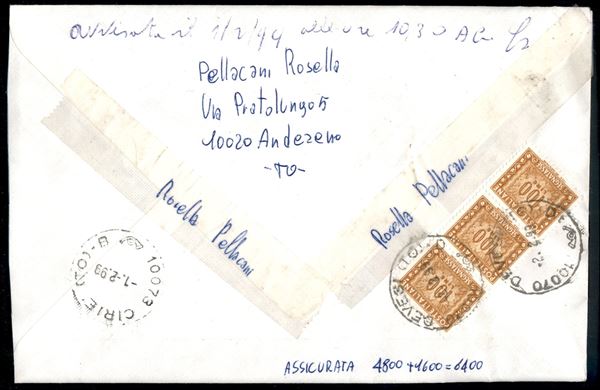 avvisata il 1/2/99 alle ore 10,30
Pellacani Rosella
Via Pratolungo 5
10020 Andezeno
-TO-
Rosella Pellacani
Rosella Pellacani
10073 CIRIE' (TO) - B
-1.2.99
10070 DEVESI (TO)
ASSICURATA 4800+1600=6400